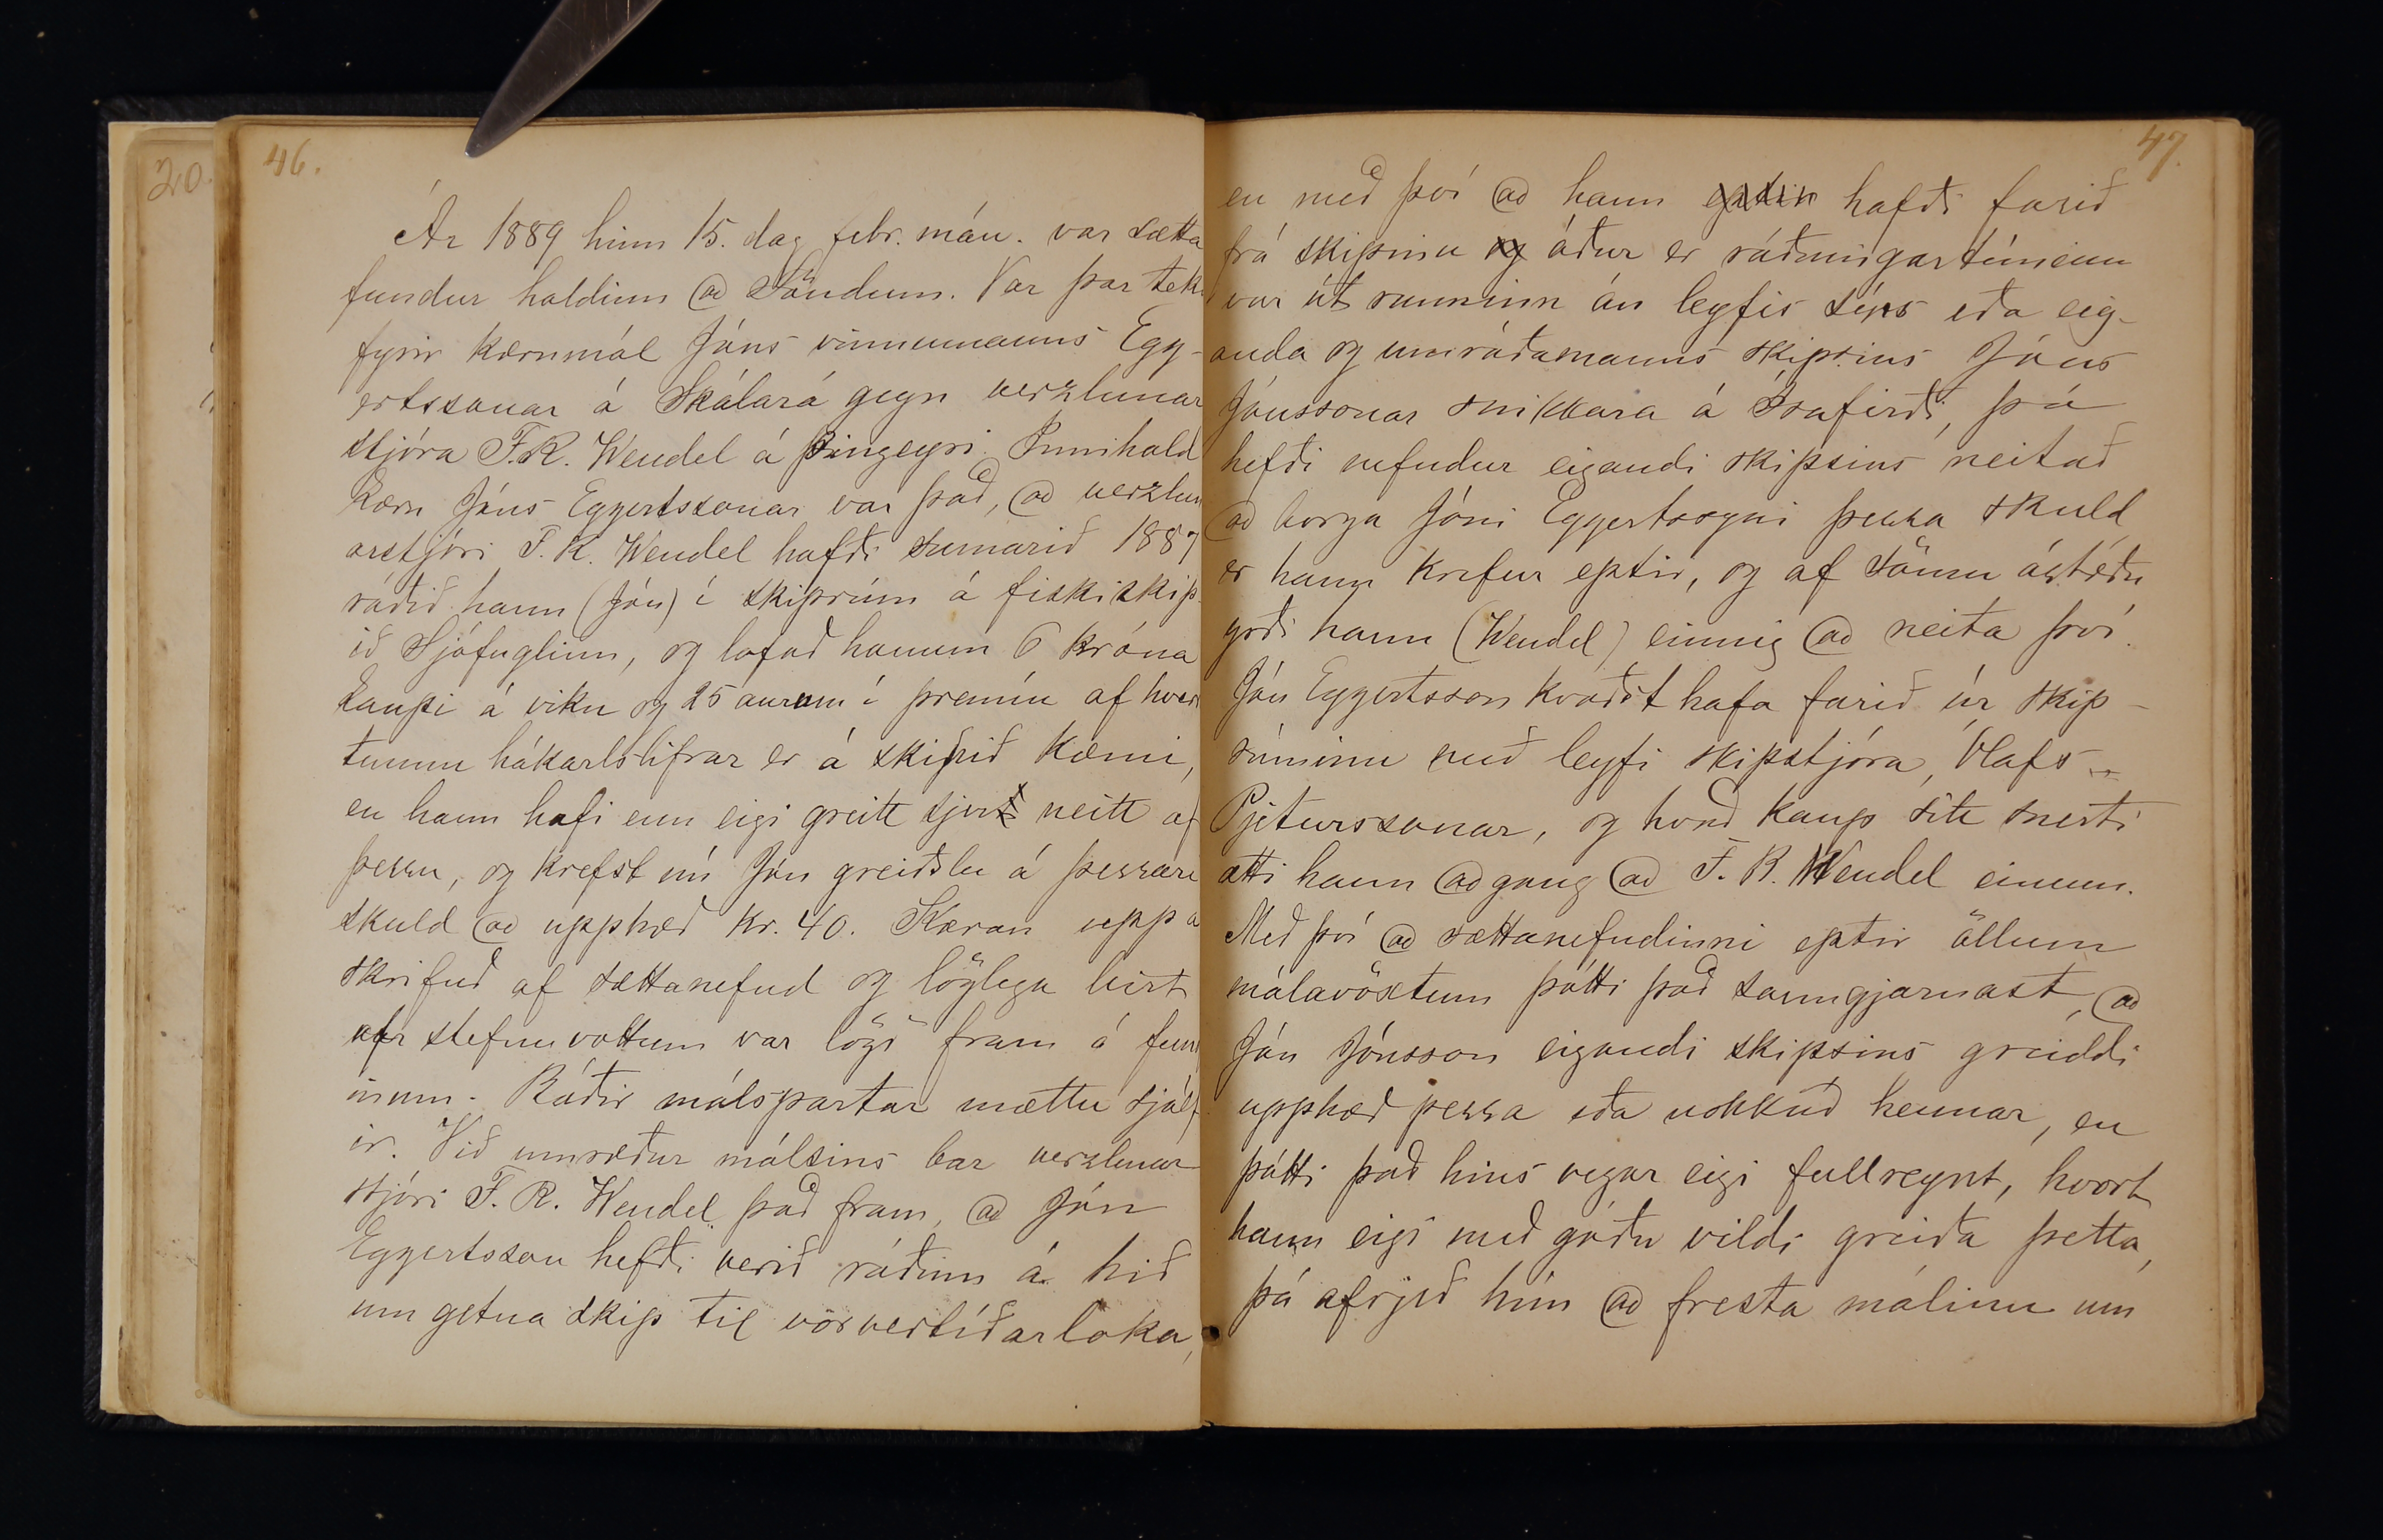 20.
46.
Ár 1889 hinn 15. dag febr. mán. var sætta
fundur haldinn að Söndum. Var þar tek
fyrir kærumál Jóns vinnumanns Egg-
ertssonar á Skálará gegn verzlunar
stjóra F.R. Wendel á Þingeyri. Innihald
kæru Jóns Eggertssonar var það, að verzlun
arstjóri F. R. Wendel hafði sumarið 1887
ráðið hann (Jón) í skiprúm á fiskiskip
ið Sjófuglinn, og lofað honum 6 króna
kaupi á viku og 25 aurum í premíu af hverri
tunnu hákarlslifrar er á skipið kæmi,
en hann hafi enn eigi greitt sjer neitt af
þessu, og krefst nú Jón greiðslu á þessari
skuld að upphæð kr. 40. Kæran upp á
skrifuð af sættanefnd og löglega birt
af stefnuvottum var lögð fram á fund
inum. Báðir málspartar mættu sjálf
ir. Við umræður málsins bar verzlunar
stjóri F. R. Wendel það fram, að Jón
Eggertsson hefði verið ráðinn á hið
um getna skip til vorvertíðarloka,
47.
en með því að hann eptir hafði farið
frá skipinu og áður er ráðningartíminn
var út runninn án leyfis síns eða eig-
anda og umráðamanns skipsins Jóns
Jónssonar snikkara á Ísafirði, þá
hefði nefndur eigandi skipsins neitað
að borga Jóni Eggertssyni þessa skuld
er hann krefur eptir, og af sömu ástæðu
yrði hann (Wendel) einnig að neita því.
Jón Eggertsson kvaðst hafa farið úr skip-
rúminu með leyfi skipstjóra, Ólafs
Pjeturssonar, og hvað kaup sitt snerti
ætti hann aðgang að F. R. Wendel einum.
Með því að sættanefndinni eptir öllum
málavöxtum þótti það sanngjarnast, að
Jón Jónsson eigandi skipsins greiddi
upphæð þessa eða nokkuð hennar, en
þótti það hins vegar eigi fullreynt, hvort
hann eigi með góðu vildi greiða þetta,
þá afrjeð hún að fresta málinu um